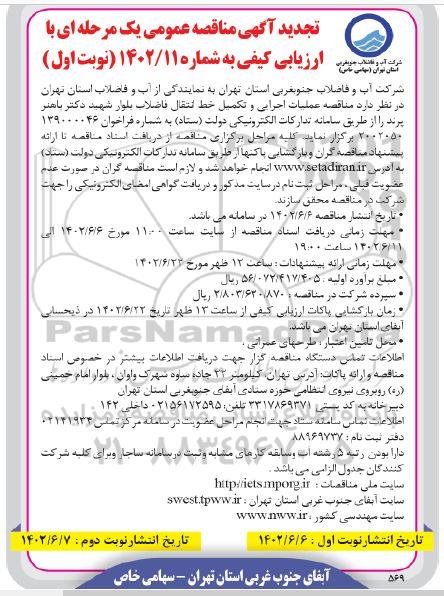 تجدید آگهی مناقصه عمومی یک مرحله ای با
ارزیابی کیفی به شماره ۱۴۰۲/۱۱ (نوبت اول)
شرکت آب و فاضلاب جنوبغربی
استان تهران (سهامی خاص)
شرکت آب و فاضلاب جنوبغربی استان تهران به نمایندگی از آب و فاضلاب استان تهران
در نظر دارد مناقصه عملیات اجرایی و تکمیل خط انتقال فاضلاب بلوار شهید دکتر باهنر
پرند را از طریق سامانه تدارکات الکترونیکی دولت (ستاد) به شماره فراخوان ۱۳۹۰۰۰۰۴۶
۲۰۰۲۰۵۰ برگزار نماید. کلیه مراحل برگزاری مناقصه از دریافت اسناد مناقصه تا ارائه
پیشنهاد مناقصه گران و بازگشایی پاکتها از طریق سامانه تدارکات الکترونیکی دولت (ستاد)
به آدرس www.setadiran.ir انجام خواهد شد و لازم است مناقصه گران در صورت عدم
عضویت قبلی ، مراحل ثبت نام در سایت مذکور و دریافت گواهی امضای الکترونیکی را جهت
شرکت در مناقصه محقق سازند.
• تاریخ انتشار مناقصه ۱۴۰۲/۶/۶ در سامانه می باشد.
• مهلت زمانی دریافت اسناد مناقصه از سایت ساعت ۱۱:۰۰ مورخ ۱۴۰۲/۶/۶ الی
۱۴۰۲/۶/۱۱ ساعت ۱۹:۰۰
• مهلت زمانی ارائه پیشنهادات : ساعت ۱۲ ظهر مورخ ۱۴۰۲/۶/۲۲
• مبلغ برآورد اولیه : ۵۶/۰۷۲/۴۱۷/۴۰۵ ریال
• سپرده شرکت در مناقصه : ۲/۸۰۳/۶۲۰/۸۷۰ ریال
• زمان بازگشایی پاکات ارزیابی کیفی از ساعت ۱۳ ظهر تاریخ ۱۴۰۲/۶/۲۲ در ذیحسابی
آبفای استان تهران می باشد.
• محل تامین اعتبار : طرحهای عمرانی
اطلاعات تماس دستگاه مناقصه گزار جهت دریافت اطلاعات بیشتر در خصوص اسناد
مناقصه و ارائه پاکات: آدرس تهران، کیلومتر ۲۲ جاده ساوه شهرک واوان ، بلوار امام خمینی
(ره) روبروی نیروی انتظامی حوزه ستادی آبفای جنوبغربی استان تهران
دبیرخانه به کد پستی ۳۳۱۷۸۶۹۳۷۱ تلفن: ۰۲۱۵۶۱۷۲۵۹۵ داخلی ۱۴۲
اطلاعات تماس سامانه ستاد جهت انجام مراحل عضویت در سامانه مرکز تماس ۰۲۱۴۱۹۳۴
دفتر ثبت نام : ۸۸۹۶۹۷۳۷
دارا بودن رتبه ۵ رشته آب و سابقه کارهای مشابه و ثبت در سامانه ساجار وبرای کلیه شرکت
کنندگان جدول الزامی می باشد .
سایت ملی مناقصات : http//iets.mporg.ir
سایت آبفای جنوب غربی استان تهران : swest.tpww.ir
سایت مهندسی کشور : www.nww.ir
تاریخ انتشار نوبت اول : ۱۴۰۲/۶/۶
تاریخ انتشار نوبت دوم : ۱۴۰۲/۶/۷
آبفای جنوب غربی استان تهران – سهامی خاص
۵۶۹